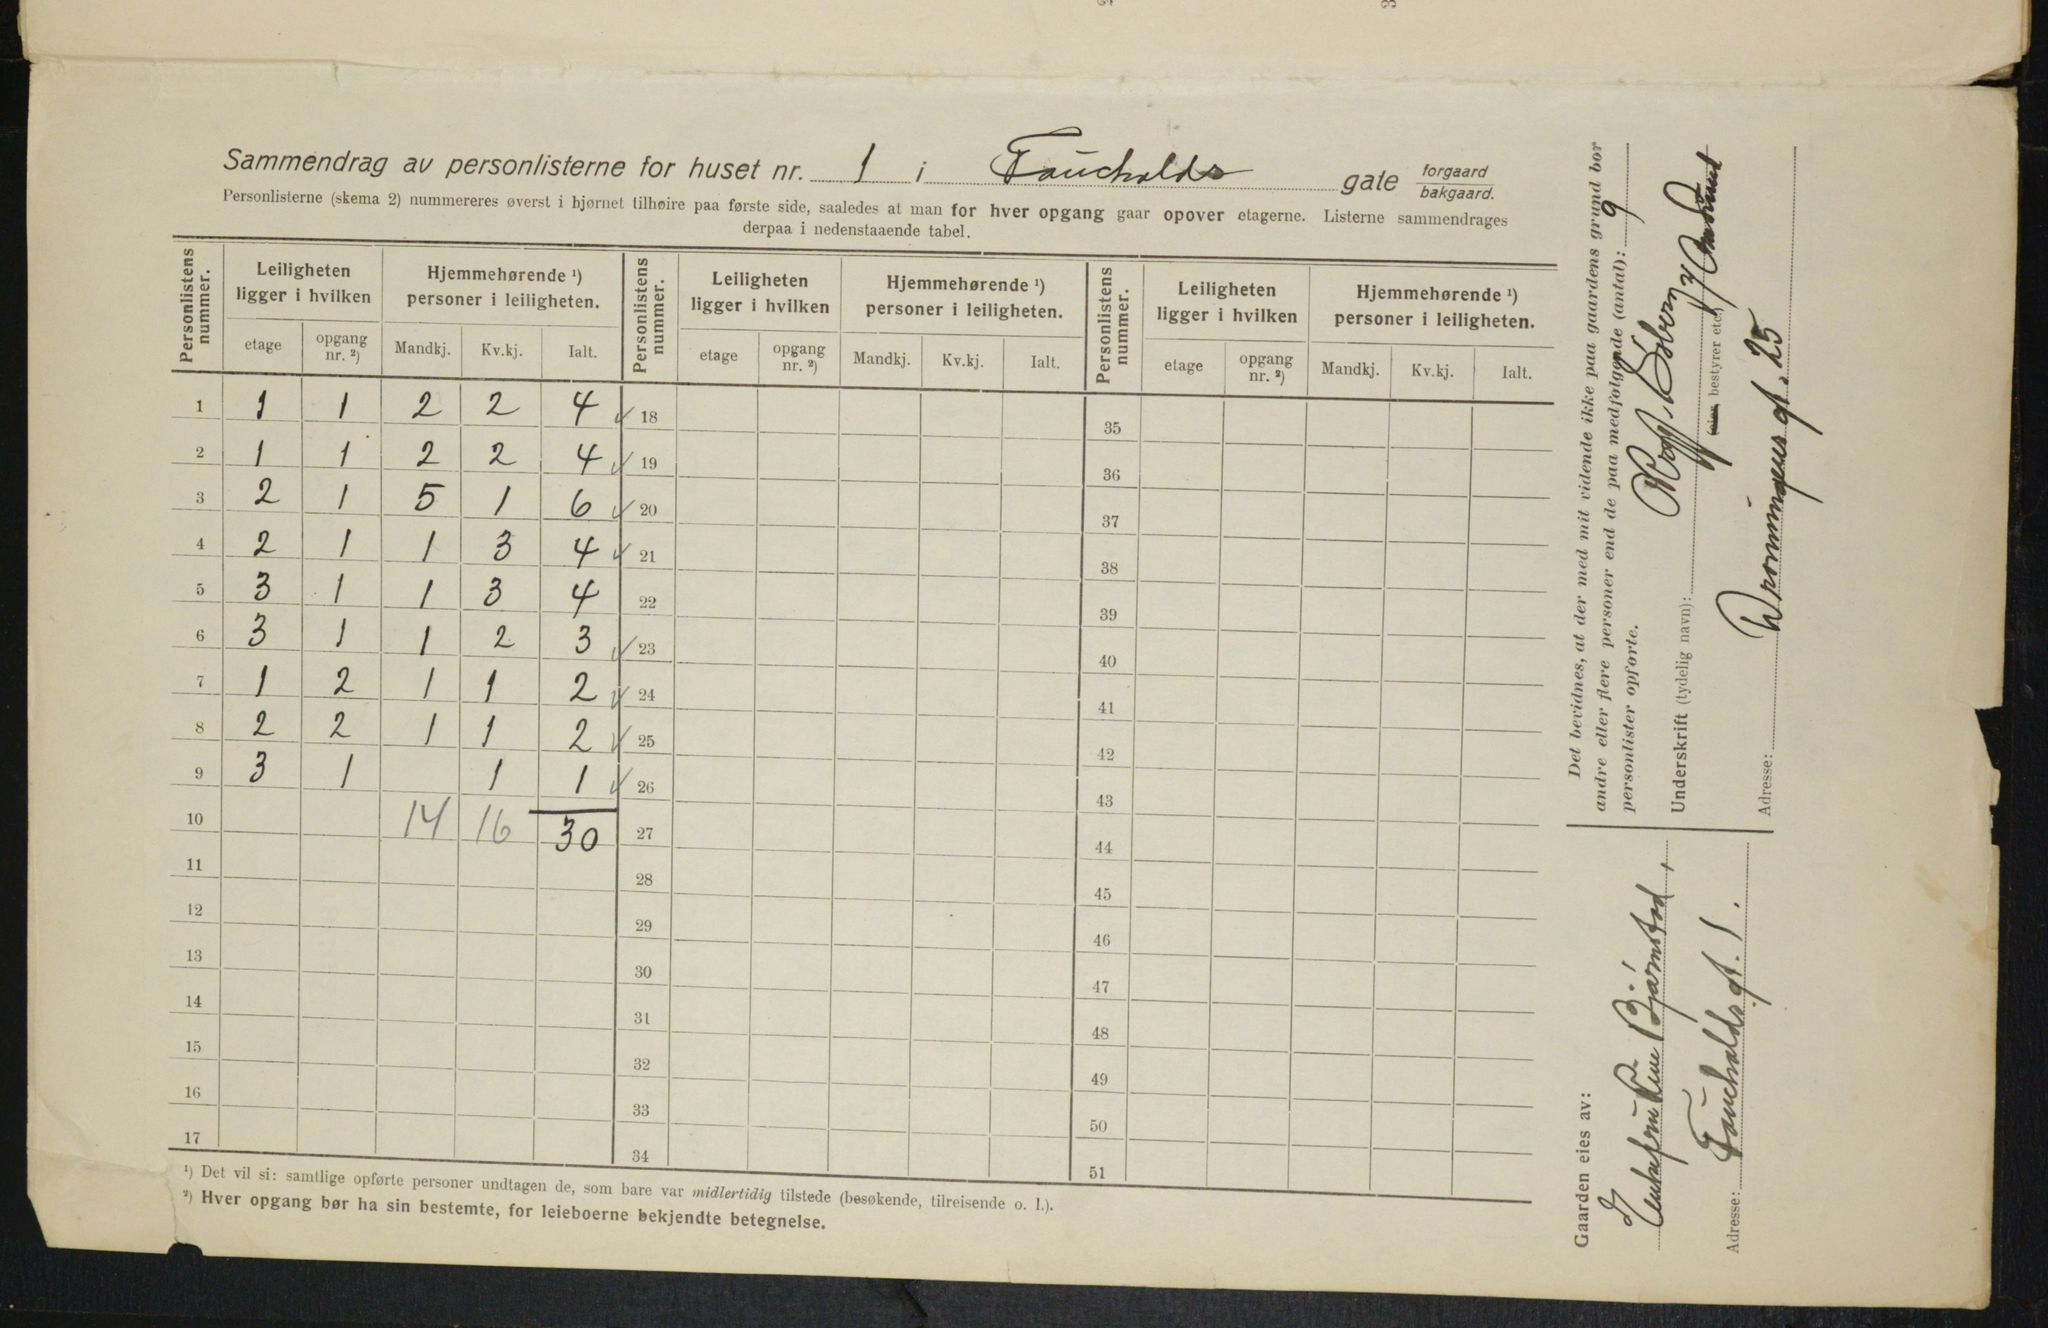 Sammendrag av personlisterne for huset nr. 1 i Faucholds gate forgaard bakgaard.
Personlisterne (skema 2) nummereres øverst i hjørnet tilhøire paa første side, saaledes at man for hver opgang gaar opover etagerne. Listerne sammendrages
derpaa i nedenstaaende tabel.
Personlistens nummer. Leiligheten ligger i hvilken Hjemmehørende ¹) personer i leiligheten. Personlistens nummer. Leiligheten ligger i hvilken Hjemmehørende ¹) personer i leiligheten. Personlistens nummer. Leiligheten ligger i hvilken Hjemmehørende ¹) personer i leiligheten.
etage opgang nr. ²) Mandkj. Kv.kj. Ialt. etage opgang nr. ²) Mandkj. Kv.kj. Ialt. etage opgang nr. ²) Mandkj. Kv.kj. Ialt.
1 1 1 2 2 4 ✓ 18 35
2 1 1 2 2 4 ✓ 19 36
3 2 1 5 1 6 ✓ 20 37
4 2 1 1 3 4 ✓ 21 38
5 3 1 1 3 4 22 39
6 3 1 1 2 3 ✓ 23 40
7 1 2 1 1 2 ✓ 24 41
8 2 2 1 1 2 ✓ 25 42
9 3 1 1 1 ✓ 26 43
10 14 16 30 27 44
11 28 45
12 29 46
13 30 47
14 31 48
15 32 49
16 33 50
17 34 51
¹) Det vil si: samtlige opførte personer undtagen de, som bare var midlertidig tilstede (besøkende, tilreisende o. l.).
²) Hver opgang bør ha sin bestemte, for leieboerne bekjendte betegnelse.
Det bevidnes, at der med mit vidende ikke paa gaardens grund bor
andre eller flere personer end de paa medfølgende (antal): 9
personlister opførte.
Underskrift (tydelig navn):
(eier, bestyrer etc.)
Adresse: Dronningens gt. 25
Gaarden eies av:
Enkefru Bjørnstad,
Adresse: Faucholdsgt. 1.